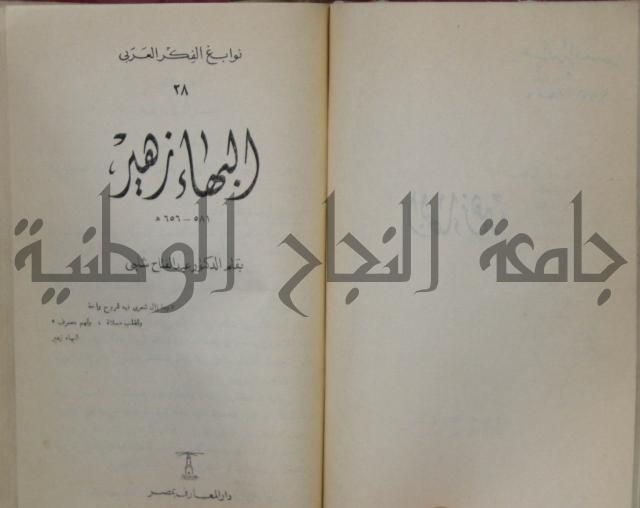 نوابغ الفكر العربي
٢٨
البهاء زهير
٥٨١ - ٦٥٦ ه
بقلم الدكتور عبد الفتاح شلبي
شعري فيه للروح راحة
وللقلب مسلاة ، وللهم مصرف »
البهاء زهير
دار المعارف بمصر
جامعة النجاح الوطنية